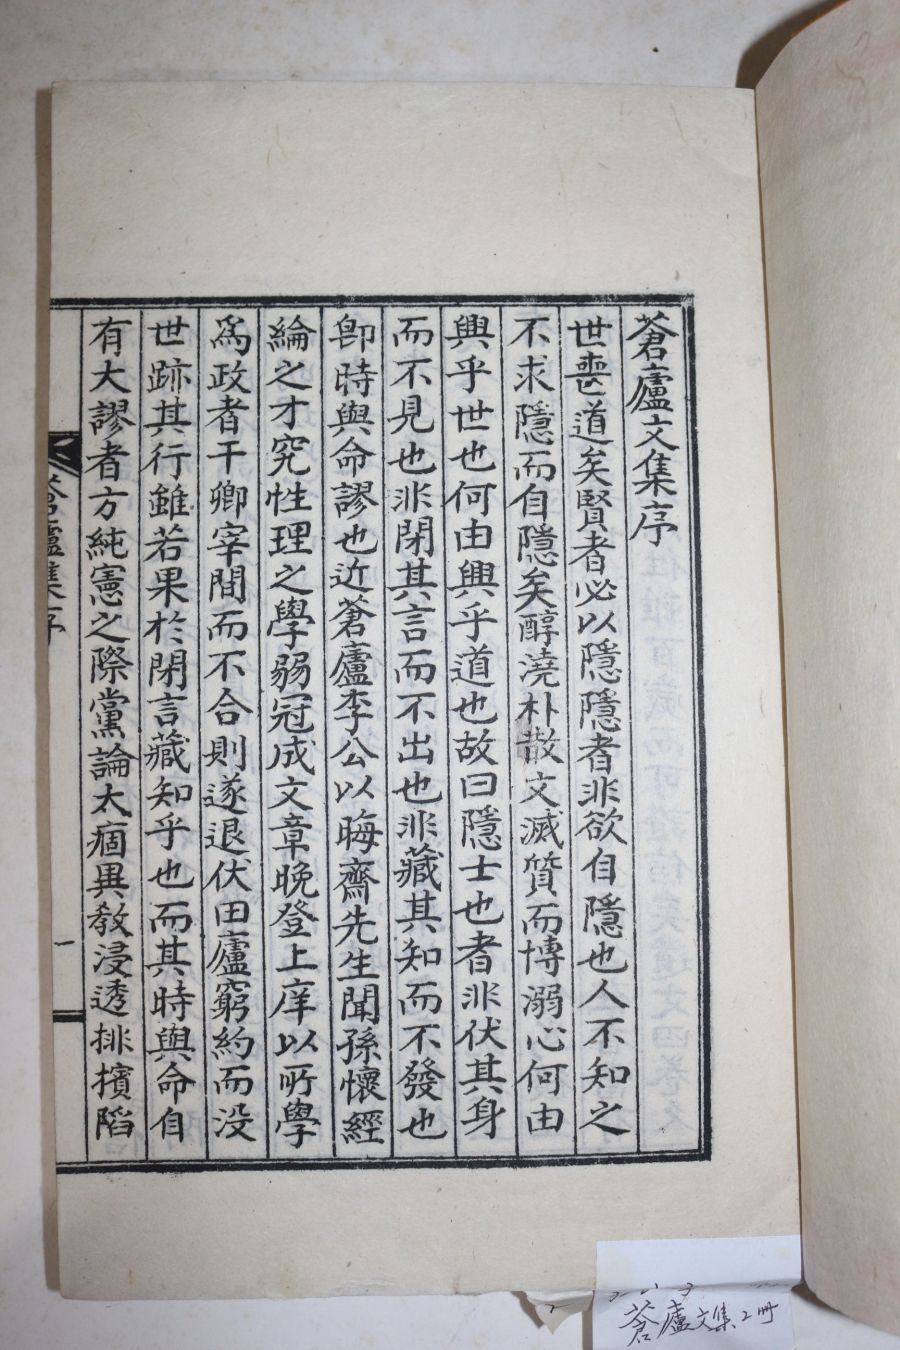 蒼廬文集序
世喪道矣賢者必以隱隱者非欲自隱也人不知之
不求隱而自隱矣醇澆朴散文滅質而博溺心何由
興乎世也何由興乎道也故曰隱士也者非伏其身
而不見也非閉其言而不出也非藏其知而不發也
卽時與命謬也近蒼廬李公以晦齋先生聞孫懷經
綸之才究性理之學弱冠成文章晚登上庠以所學
爲政者干卿宰間而不合則遂退伏田廬窮約而没
世跡其行雖若果於閉言藏知乎也而其時與命自
有大謬者方純憲之際黨論太痼異敎浸透排擯陷
蒼廬集序
一
蒼廬文集2冊